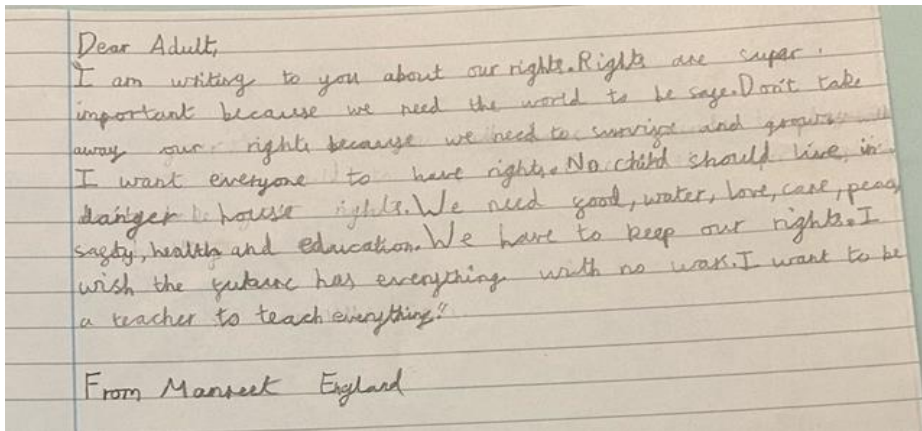 Dear Adult,
I am writing to you about our rights. Rights are super
important because we need the world to be safe. Don't take
away our rights because we need to survive and
I want everyone to have rights. No child should live in
danger house rights. We need food, water, love, care, peace,
safty, health and education. We have to keep our rights. I
wish the future has everything with no war. I want to be
a teacher to teach everything."
From Manreet England